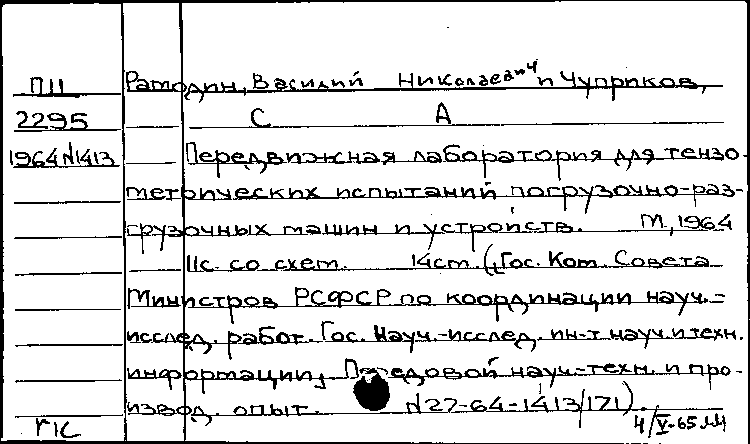 П11 Рамодин, Василий Николаевич и Чуприков,
2295 С А
1964 N1413 Передвижная лаборатория для тензо-
метрических испытаний погрузочно-раз-
грузочных машин и устройств. М, 1964
11с. со схем. 14см. (Гос. Ком. Совета
Министров РСФСР по координации науч.-
исслед. работ. Гос. Науч.-исслед. ин-т науч. и техн.
информации, Передовой науч.-техн. и про-
извод. опыт. N27-64-1413/171).
4/V-65